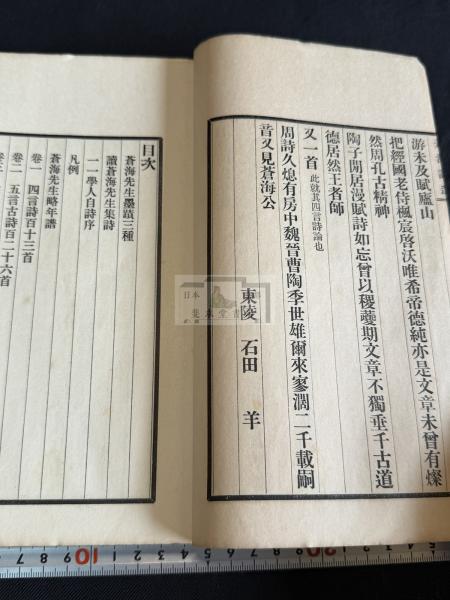 游未及賦廬山
把經國老侍楓宸啓沃唯希帝德純亦是文章未曾有燦
然周孔古精神
陶子閒居漫賦詩如忘曾以稷夔期文章不獨垂千古道
德居然王者師
又一首 此就其四言詩論也
周詩久熄有房中魏晉曹陶季世雄爾來寥濶二千載嗣
音又見蒼海公
東陵 石田 羊
目次
蒼海先生墨蹟三種
讀蒼海先生集詩
一一學人自詩序
凡例
蒼海先生略年譜
卷一 四言詩百十三首
卷二 五言古詩百二十六首
日本
書
10
20